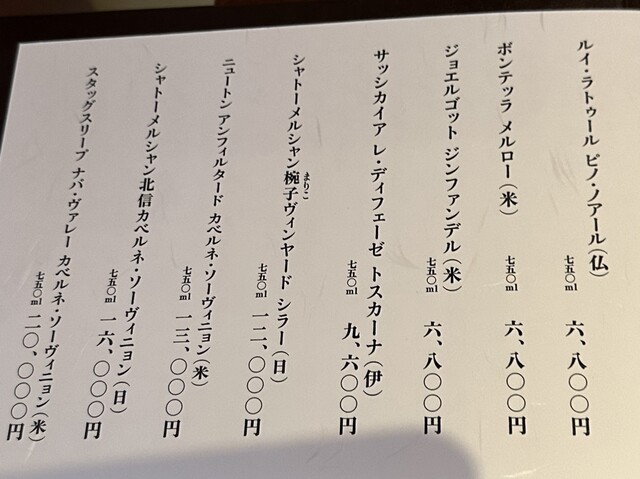 ルイ・ラトゥール ピノ・ノアール(仏)
七五〇ml 六、八〇〇円
ボンテッラ メルロー(米)
七五〇ml 六、八〇〇円
ジョエルゴット ジンファンデル(米)
七五〇ml 六、八〇〇円
サッシカイア レ・ディフェーゼ トスカーナ(伊)
七五〇ml 九、六〇〇円
シャトーメルシャン椀子ヴィンヤード シラー(日)
まりこ
七五〇ml 一二、〇〇〇円
ニュートン アンフィルタード カベルネ・ソーヴィニョン(米)
七五〇ml 一三、〇〇〇円
シャトーメルシャン北信カベルネ・ソーヴィニョン(日)
七五〇ml 一六、〇〇〇円
スタッグスリープ ナパ・ヴァレー カベルネ・ソーヴィニョン(米)
七五〇ml 二〇、〇〇〇円